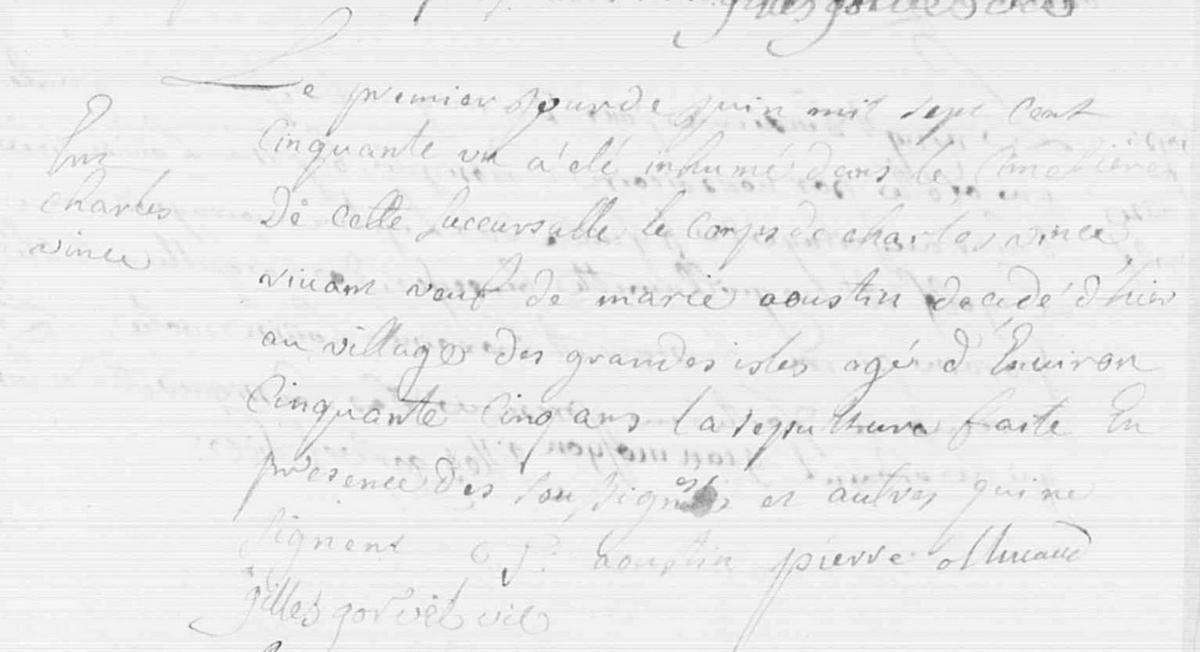 Le premier jour de juin mil sept cent
cinquante un a été inhumé dans le Cimetiere
De cette succursalle le corps de charles vince
vivant veuf de marie aoustin decedé d'hier
au village des grandes isles agé d'Environ
Cinquante Cinq ans la sepulture faite En
presence des sousignés et autres qui ne
signent aoustin pierre
gilles gorvel vic
Inh
charles
vince